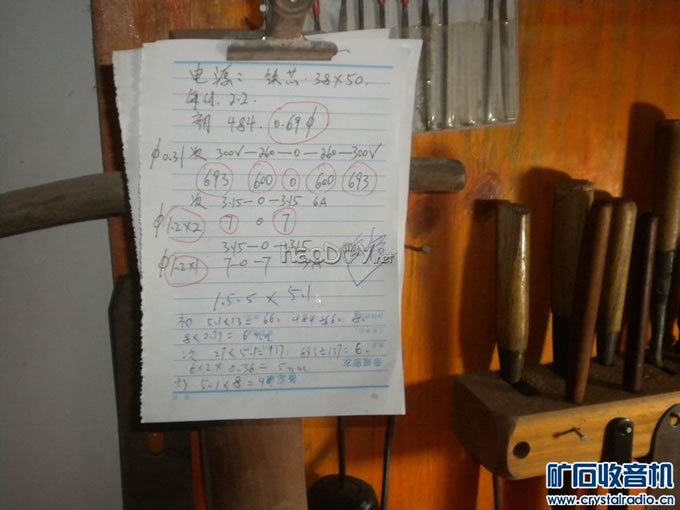 电源: 铁芯 38×50.
每伏. 2.2.
初 484. 0.69 ϕ
ϕ0.31 次 300V—260—0—260—300V
693 600 0 600 693
次 3.15—0—3.15 6A
ϕ1.2×2 7 0 7
3.15—0—3.15
ϕ1.2×1 7—0—7
haoDIY.net
1.5.5 × 5.1
初 5.1×13=66. 484÷66=8
次 27×5.1=137. 693÷137=6.
6×2× 0.36=
5.1×8=4
矿石收音机
www.crystalradio.cn